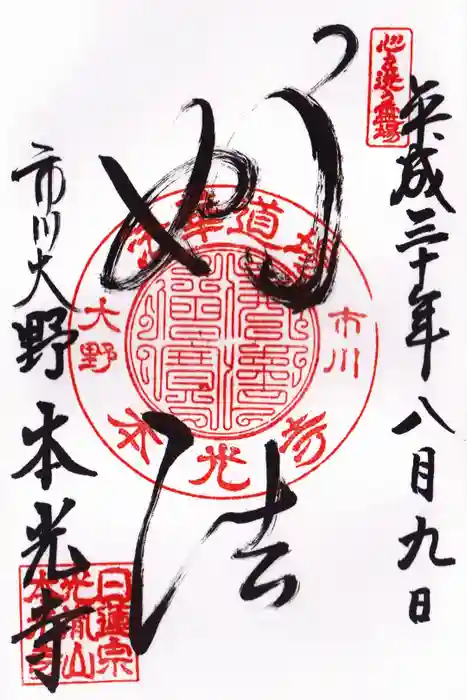 心を洗う霊場
平成三十年八月九日
妙法
法華道場
市川
大野
本光寺
市川大野
本光寺
日蓮宗
光胤山
本光寺